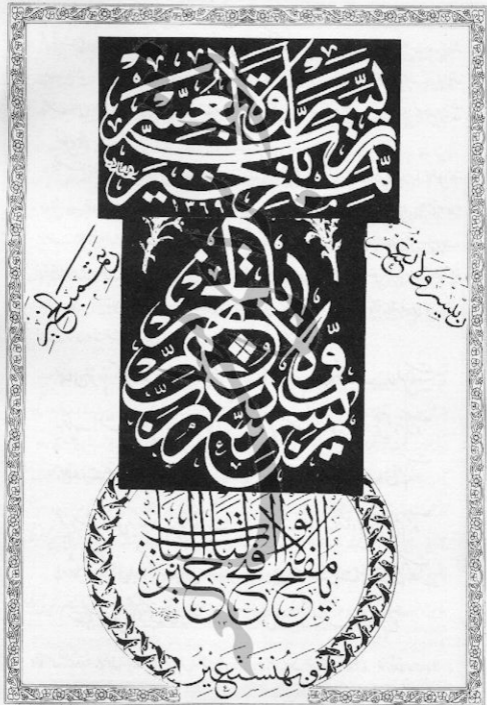 رب يسر ولا تعسر
رب تمم بالخير
١٣٦٩
رب يسر ولا تعسر
رب تمم بالخير
رب يسر ولا تعسر رب تمم بالخير
يا مفتح الابواب افتح لنا خير الباب
وبه نستعين